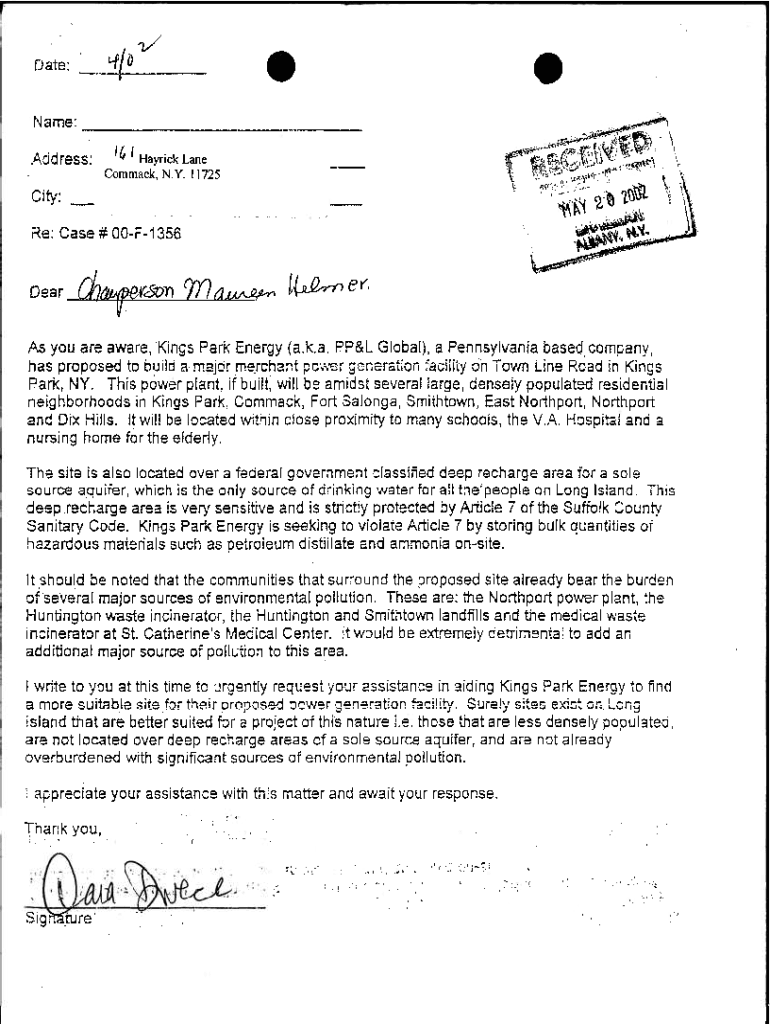 Date: 4/02
Name:
Address: 161 Hayrick Lane
Commack, N.Y. 11725
City:
RECEIVED
MAY 20 2002
ALBANY, N.Y.
Re: Case # 00-F-1356
Dear Chairperson Maureen Helmer.
As you are aware, Kings Park Energy (a.k.a. PP&L Global), a Pennsylvania based company,
has proposed to build a major merchant power generation facility on Town Line Road in Kings
Park, NY. This power plant, if built, will be amidst several large, densely populated residential
neighborhoods in Kings Park, Commack, Fort Salonga, Smithtown, East Northport, Northport
and Dix Hills. It will be located within close proximity to many schools, the V.A. Hospital and a
nursing home for the elderly.
The site is also located over a federal government classified deep recharge area for a sole
source aquifer, which is the only source of drinking water for all the people on Long Island. This
deep recharge area is very sensitive and is strictly protected by Article 7 of the Suffolk County
Sanitary Code. Kings Park Energy is seeking to violate Article 7 by storing bulk quantities of
hazardous materials such as petroleum distillate and ammonia on-site.
It should be noted that the communities that surround the proposed site already bear the burden
of several major sources of environmental pollution. These are: the Northport power plant, the
Huntington waste incinerator, the Huntington and Smithtown landfills and the medical waste
incinerator at St. Catherine's Medical Center. It would be extremely detrimental to add an
additional major source of pollution to this area.
I write to you at this time to urgently request your assistance in aiding Kings Park Energy to find
a more suitable site for their proposed power generation facility. Surely sites exist on Long
island that are better suited for a project of this nature i.e. those that are less densely populated,
are not located over deep recharge areas of a sole source aquifer, and are not already
overburdened with significant sources of environmental pollution.
I appreciate your assistance with this matter and await your response.
Thank you,
Dara
Signature